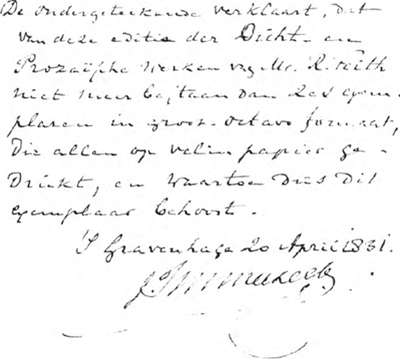 De ondergeteekende verklaart, dat
van deze editie der Dicht- en
Prozaïsche Werken van Mr. R. Feith
niet meer bestaan dan zes exem-
plaren in groot-octavo formaat,
die allen op velin papier ge-
drukt, en waartoe dus dit
exemplaar behoort.
'S Gravenhage 20 April 1831.